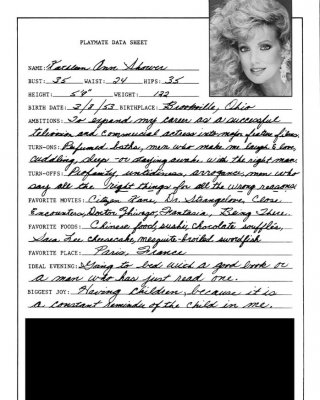 PLAYMATE DATA SHEET
NAME: Kathleen Ann Shower
BUST: 35 WAIST: 24 HIPS: 35
HEIGHT: 5'9" WEIGHT: 122
BIRTH DATE: 3/8/53 BIRTHPLACE: Brookville, Ohio
AMBITIONS: To expand my career as a successful
television and commercial actress into major feature films.
TURN-ONS: Perfumed baths, men who make me laugh & love,
cuddling, sleep or staying awake with the right man.
TURN-OFFS: Profanity, untidiness, arrogance, men who
say all the right things for all the wrong reasons
FAVORITE MOVIES: Citizen Kane, Dr. Strangelove, Close
Encounters, Doctor Zhivago, Fantasia, Being There.
FAVORITE FOODS: Chinese food, sushi, chocolate soufflés,
Sara Lee cheesecake, mesquite-broiled swordfish
FAVORITE PLACE: Paris, France
IDEAL EVENING: Going to bed with a good book or
a man who has just read one.
BIGGEST JOY: Having children, because it is
a constant reminder of the child in me.